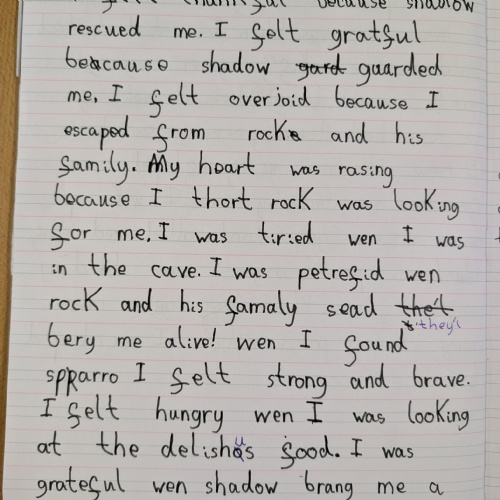 I felt thankful because shadow
rescued me. I felt gratful
beacause shadow gard guarded
me, I felt overjoid because I
escaped from rock and his
family. My heart was rasing
because I thort rock was looking
for me. I was tiried wen I was
in the cave. I was petrefid wen
rock and his famaly sead the't
they'l
bery me alive! wen I found
sparro I felt strong and brave.
I felt hungry wen I was looking
at the delishus food. I was
grateful wen shadow brang me a